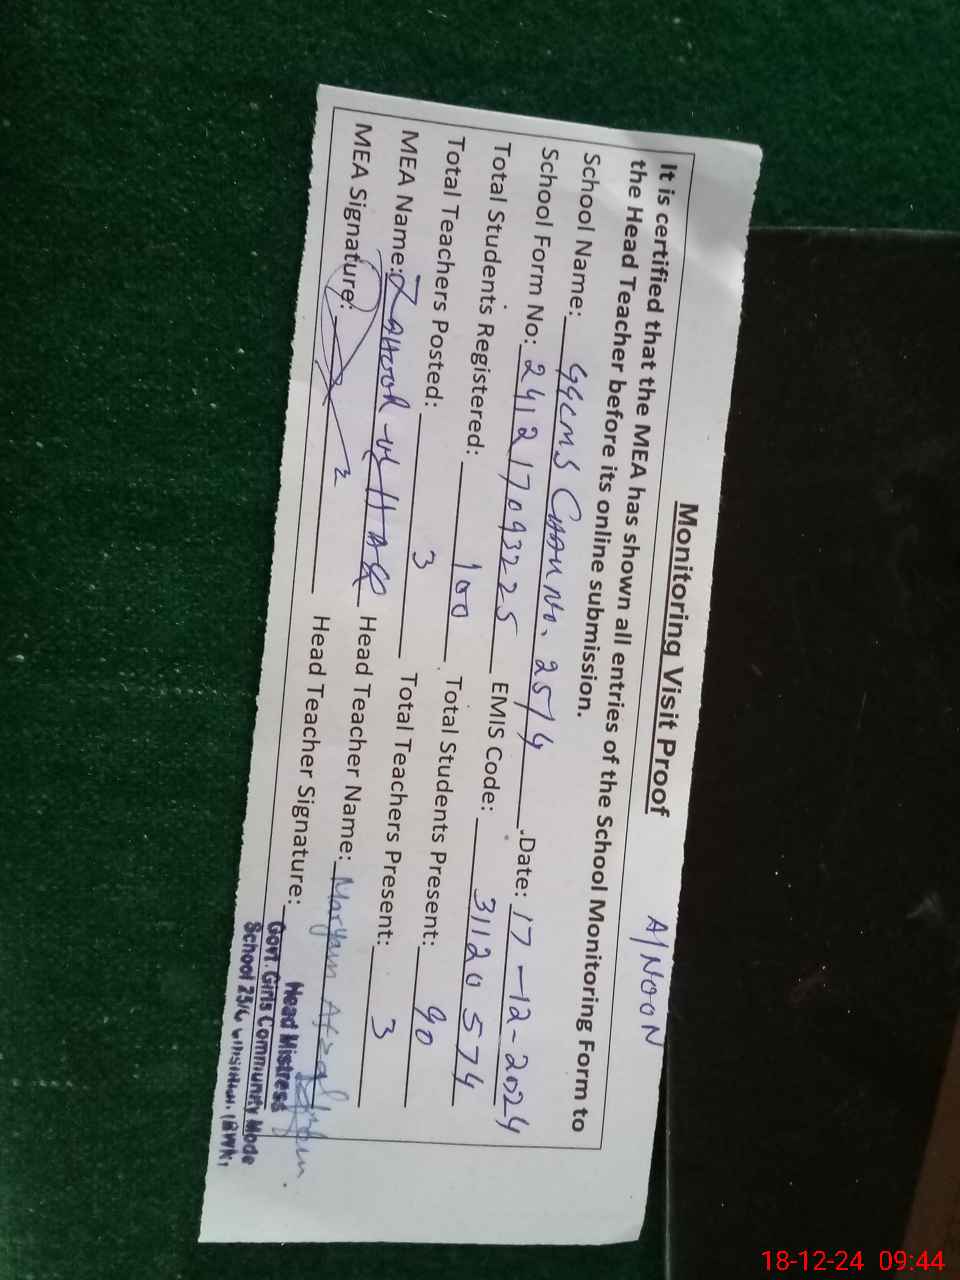 Monitoring Visit Proof
A/NOON
It is certified that the MEA has shown all entries of the School Monitoring Form to
the Head Teacher before its online submission.
School Name: GGCMS Chak No. 25/4 .Date: 17-12-2024
School Form No: 241217093225 EMIS Code: 31120574
Total Students Registered: 100 . Total Students Present: 90
Total Teachers Posted: 3 Total Teachers Present: 3
MEA Name: Zahoor-ul-Haq Head Teacher Name: Maryam Afzal
MEA Signature: Head Teacher Signature:
Head Mistress
Govt. Girls Community Mode
School 25/
18-12-24 09:44